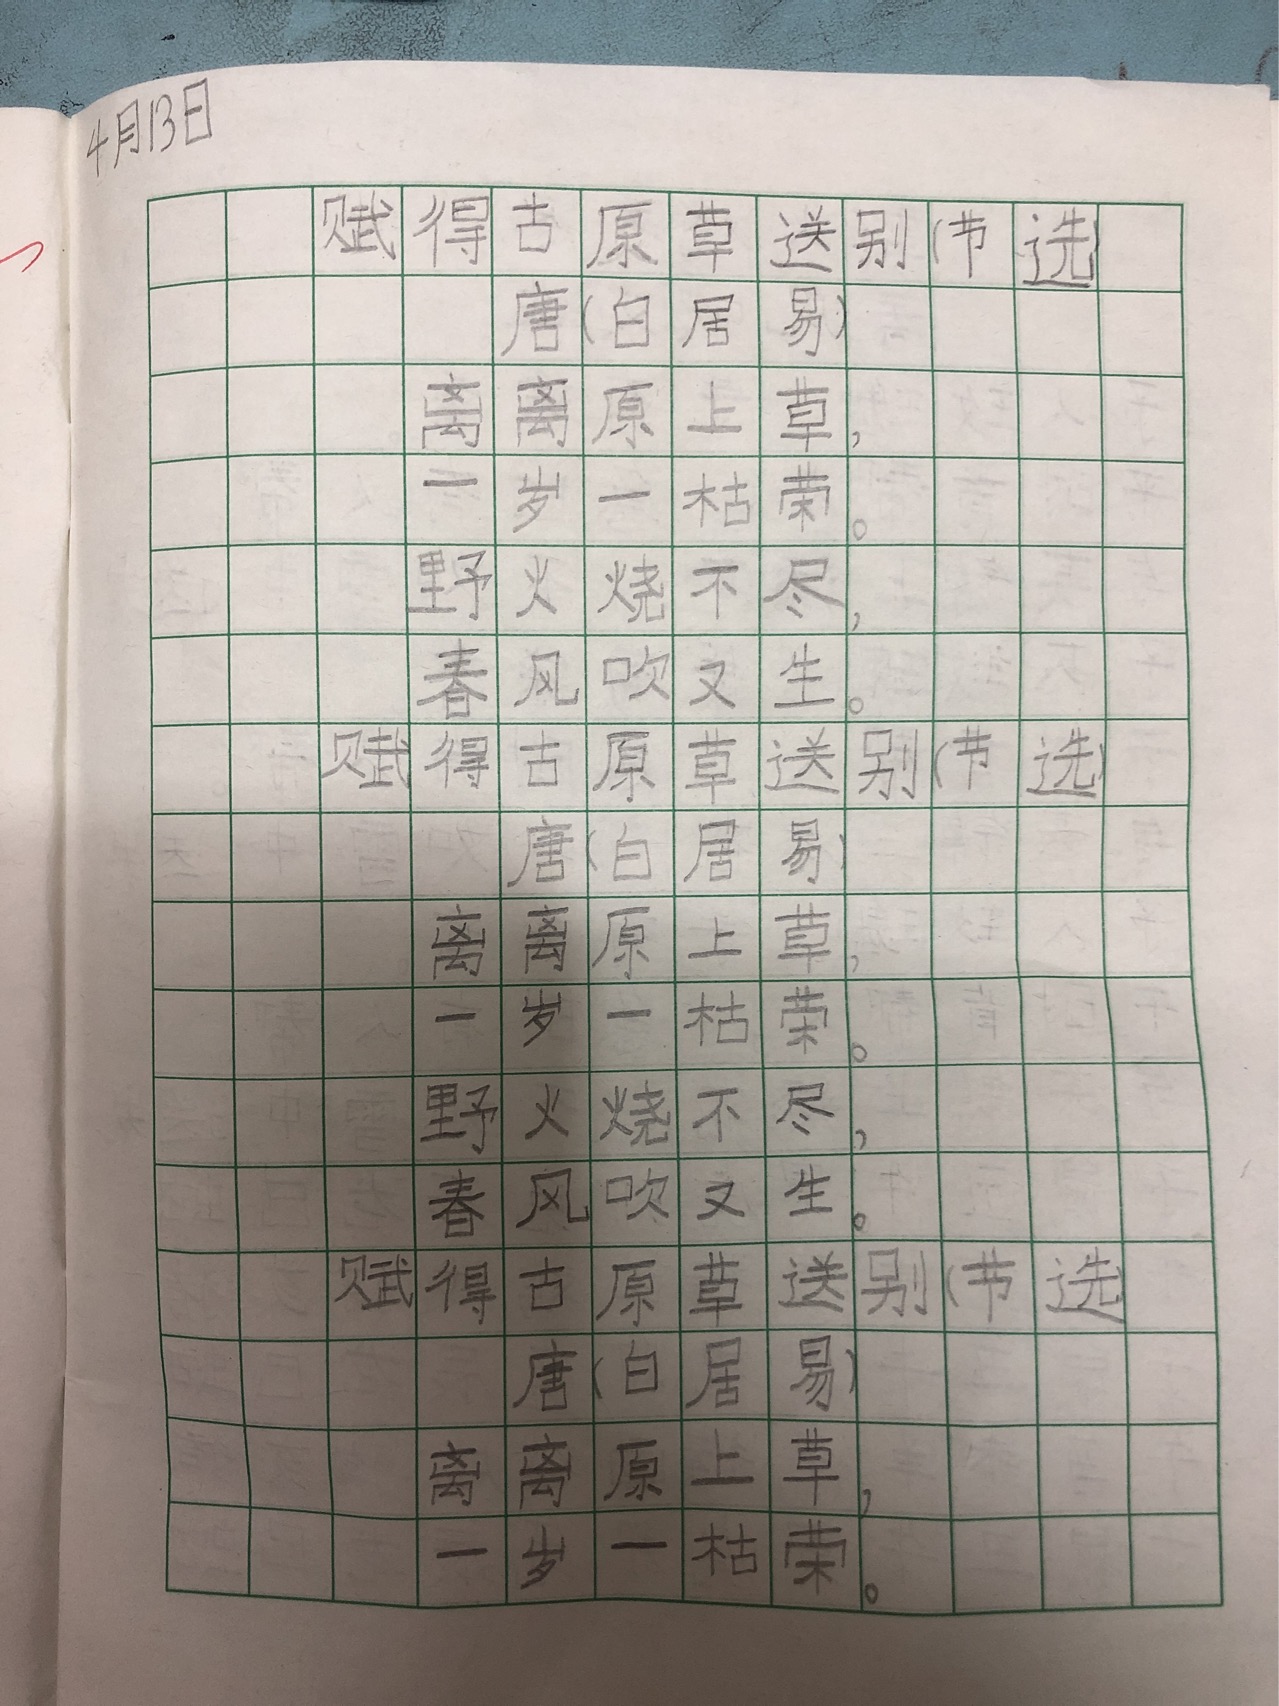 4月13日
赋得古原草送别(节选)
唐(白居易)
离离原上草,
一岁一枯荣。
野火烧不尽,
春风吹又生。
赋得古原草送别(节选)
唐(白居易)
离离原上草,
一岁一枯荣。
野火烧不尽,
春风吹又生。
赋得古原草送别(节选)
唐(白居易)
离离原上草,
一岁一枯荣。